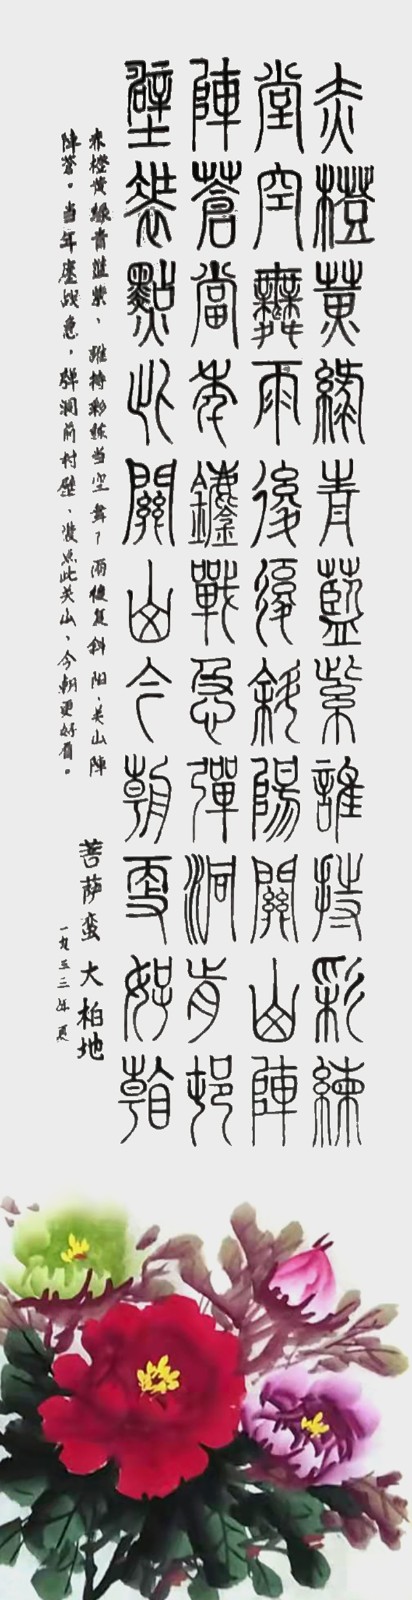 赤橙黃綠青藍紫誰持彩練
堂空舞雨後復斜陽關山陣
陣蒼當年鏖戰急彈洞前村
壁裝點此關山今朝更好看
赤橙黄绿青蓝紫、谁持彩练当空舞?雨後复斜阳、关山阵
阵苍。当年鏖战急,弹洞前村壁、装点此关山、今朝更好看。
菩萨蛮 大柏地
一九三三年夏